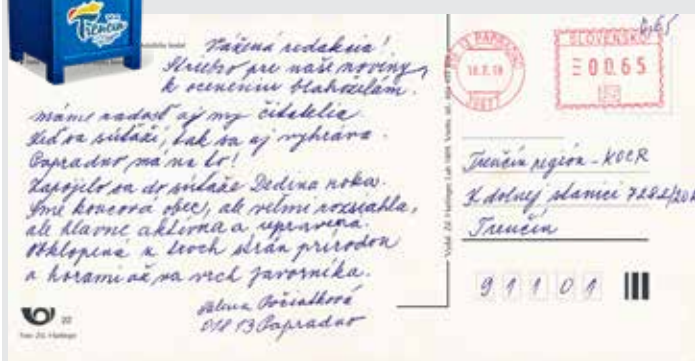 Trenčín
Vážená redakcia!
Striebro pre naše noviny,
k oceneniu blahoželám.
máme radosť aj my čitatelia
Keď sa súťaží, tak sa aj vyhráva.
Papradno má na to!
Zapojilo sa do súťaže Dedina roka.
Sme koncová obec, ale veľmi rozsiahla,
ale hlavne aktívna a upravená.
Obklopená z troch strán prírodou
a horami až na vrch Javorníka.
018 13 Papradno
22
SLOVENSKO
0,65
00.65
Trenčín región - KOCR
K dolnej stanici 7282/20A
Trenčín
9 1 1 0 1